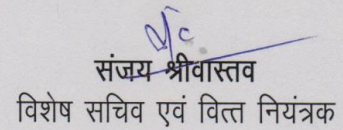 संजय श्रीवास्तव
विशेष सचिव एवं वित्त नियंत्रक